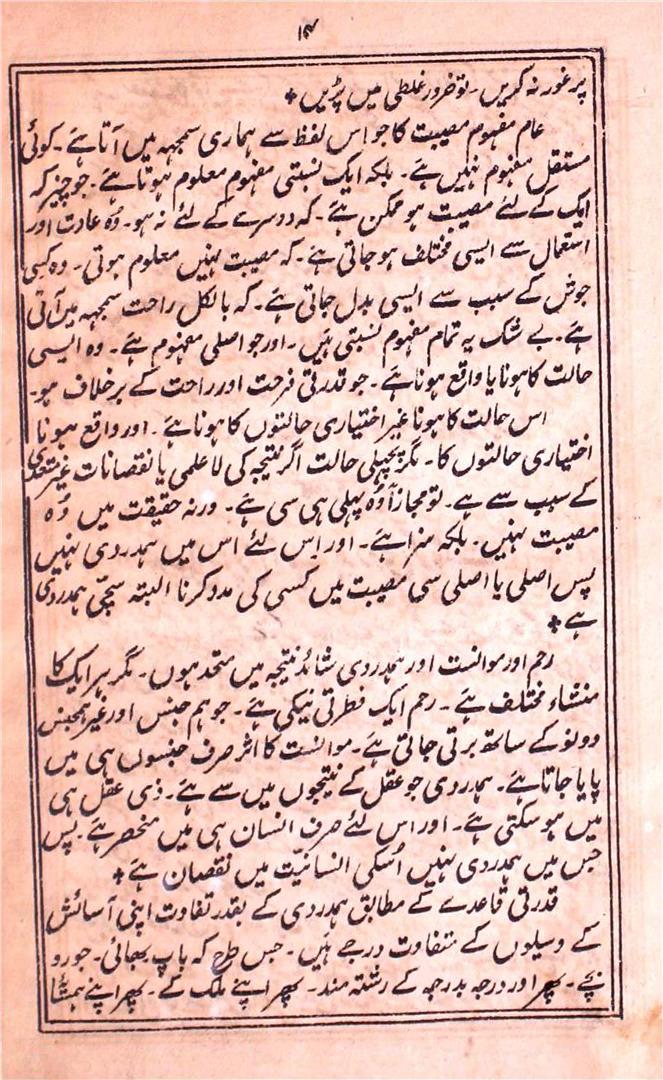 ۱۴
پر غور نہ کریں۔ تو ضرور غلطی میں پڑیں ٭
عام مفہوم مصیبت کا جو اس لفظ سے ہماری سمجہہ میں آتا ہے۔ کوئی
مستقل مفہوم نہیں ہے۔ بلکہ ایک نسبتی مفہوم معلوم ہوتا ہے۔ جو چیز کہ
ایک کے لئے مصیبت ہو ممکن ہے۔ کہ دوسرے کے لئے نہ ہو۔ وُہ عادت اور
استعمال سے ایسی مختلف ہو جاتی ہے۔ کہ مصیبت نہیں معلوم ہوتی۔ وہ کسی
جوش کے سبب سے ایسی بدل جاتی ہے۔ کہ بالکل راحت سمجہہ میں آتی
ہے۔ بے شک یہ تمام مفہوم نسبتی ہیں۔ اور جو اصلی مفہوم ہے۔ وہ ایسی
حالت کا ہونا یا واقع ہونا ہے۔ جو قدرتی فرحت اور راحت کے برخلاف ہو۔
اس حالت کا ہونا غیر اختیاری حالتوں کا ہونا ہے۔ اور واقع ہونا
اختیاری حالتوں کا۔ مگر پچھلی حالت اگر نتیجہ کی لاعلمی یا نقصانات غیر متعدی
کے سبب سے ہے۔ تو مجازاً وُہ پہلی ہی سی ہے۔ ورنہ حقیقت میں وُہ
مصیبت نہیں۔ بلکہ سزا ہے۔ اور اِس لئے اس میں ہمدردی نہیں
پس اصلی یا اصلی سی مصیبت میں کسی کی مدد کرنا البتہ سچّی ہمدردی
ہے ٭
رحم اور موانست اور ہمدردی شائد نتیجہ میں متحد ہوں۔ مگر ہر ایک کا
منشاء مختلف ہے۔ رحم ایک فطرتی نیکی ہے۔ جو ہم جنس اور غیر ہمجنس
دونو کے ساتھ برتی جاتی ہے۔ موانست کا اثر صرف جنسوں ہی میں
پایا جاتا ہے۔ ہمدردی جو عقل کے نتیجوں میں سے ہے۔ ذی عقل ہی
میں ہو سکتی ہے۔ اور اس لئے صرف انسان ہی میں منحصر ہے۔ پس
جس میں ہمدردی نہیں اُسکی انسانیّت میں نقصان ہے ٭
قدرتی قاعدے کے مطابق ہمدردی کے بقدر تفاوت اپنی آسائش
کے وسیلوں کے متفاوت درجے ہیں۔ جس طرح کہ باپ بھائی۔ جورو
بچے۔ پھر اور درجہ بدرجہ کے رشتہ مند۔ پھر اپنے ملک کے۔ پھر اپنے